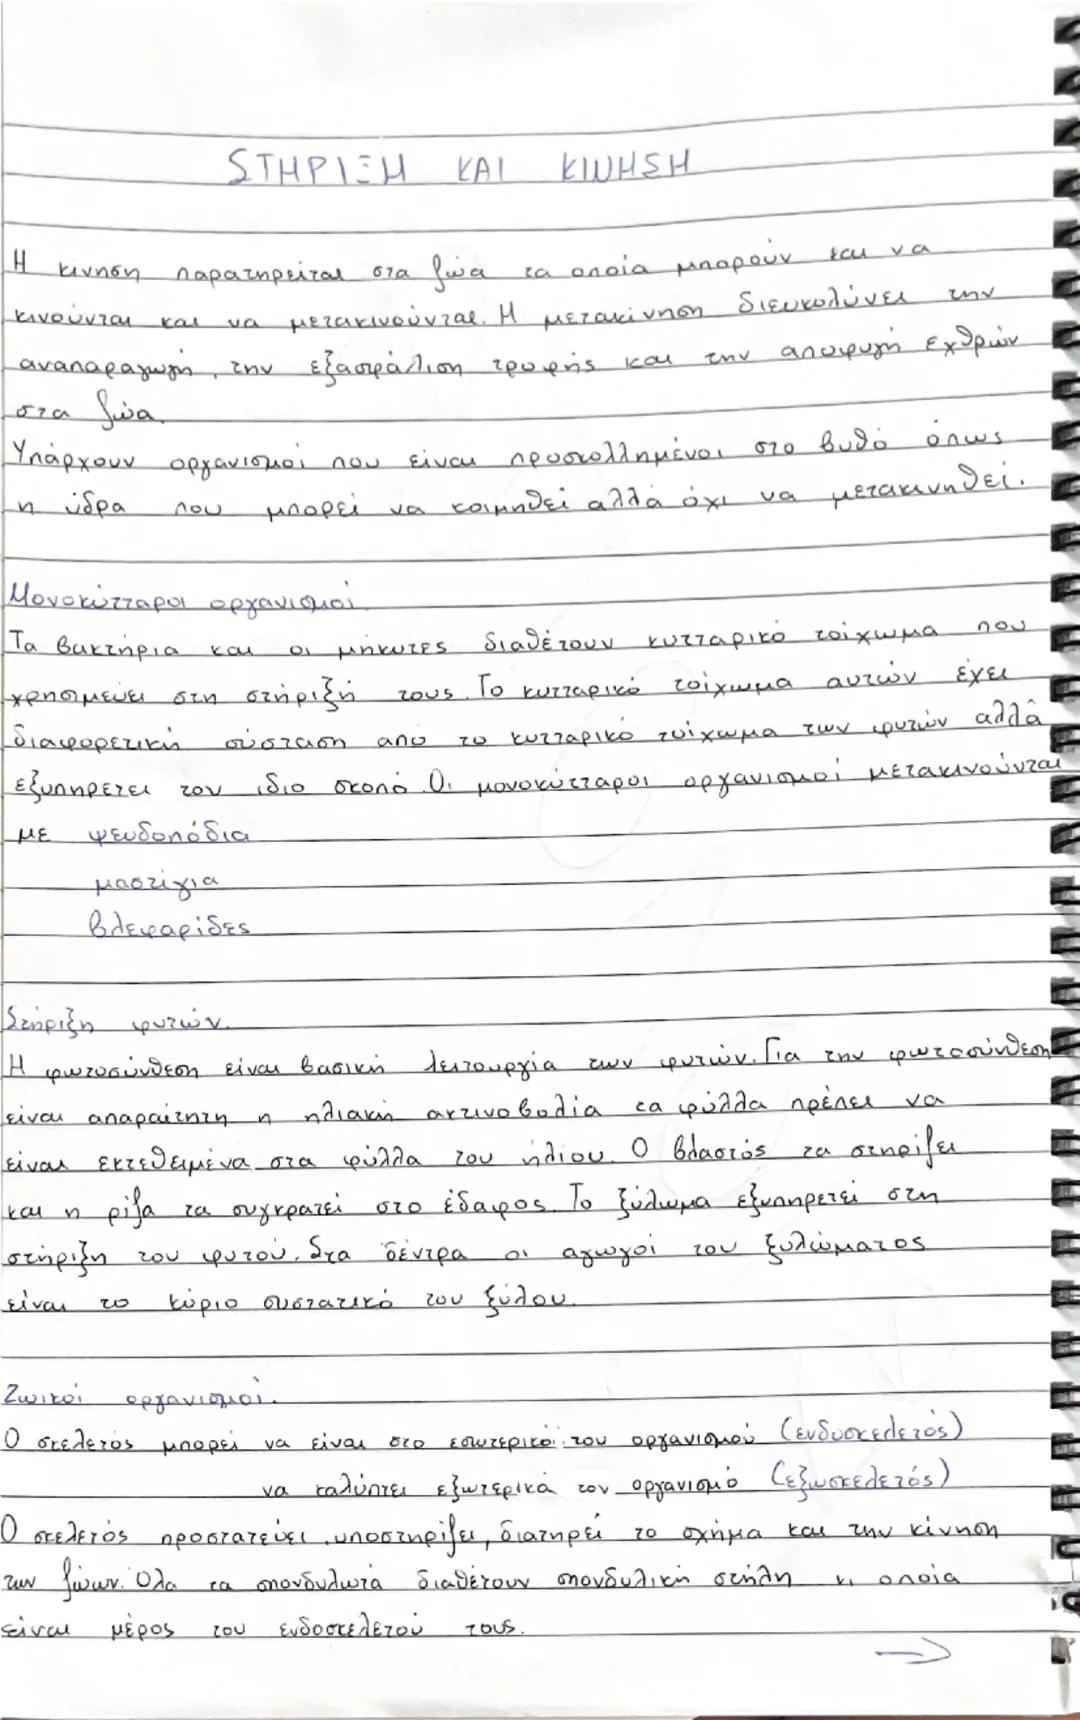 ΣΤΗΡΙΞΗ ΚΑΙ ΚΙΝΗΣΗ
Η κινηση παρατηρείται στα ζώα τα οποία μπορούν και να
κινούνται και να μετακινούνται. Η μετακίνηση διευκολύνει την
αναπαραγωγή, την εξασφάλιση τροφής και την αποφυγή εχθρών
στα ζώα.
Υπάρχουν οργανισμοί που είναι προσκολλημένοι στο βυθό όπως
η ύδρα που μπορεί να κοιμηθεί αλλά όχι να μετακινηθεί.
Μονοκύτταροι οργανισμοί
Τα βακτήρια και οι μήκυτες διαθέτουν κυτταρικό τοίχωμα που
χρησιμεύει στη στήριξή τους. Το κυτταρικό τοίχωμα αυτών έχει
διαφορετική σύσταση από το κυτταρικό τοίχωμα των φυτών αλλά
εξυπηρετεί τον ιδιο σκοπό. Οι μονοκύτταροι οργανισμοί μετακινούνται
με ψευδοπόδια
μαστίγια
βλεφαρίδες
Στήριξη φυτών.
Η φωτοσύνθεση είναι βασική λειτουργία των φυτών. Για την φωτοσύνθεση
είναι απαραίτητη η ηλιακή ακτινοβολία τα φύλλα πρέπει να
είναι εκτεθειμένα στα φύλλα του ήλιου. Ο βλαστός τα στηρίζει
και η ρίζα τα συγκρατεί στο έδαφος. Το ξύλωμα εξυπηρετεί στη
στήριξη του φυτού. Στα δέντρα οι αγωγοί του ξυλώματος
είναι το κύριο συστατικό του ξύλου.
Ζωικοί οργανισμοί.
Ο σκελετός μπορεί να είναι στο εσωτερικό του οργανισμού (ενδοσκελετός)
να καλύπτει εξωτερικά τον οργανισμό (εξωσκελετός)
Ο σκελετός προστατεύει, υποστηρίζει, διατηρεί το σχήμα και την κίνηση
των ζώων. Όλα τα σπονδυλωτά διαθέτουν σπονδυλική στήλη η οποία
είναι μέρος του ενδοσκελετού τους.